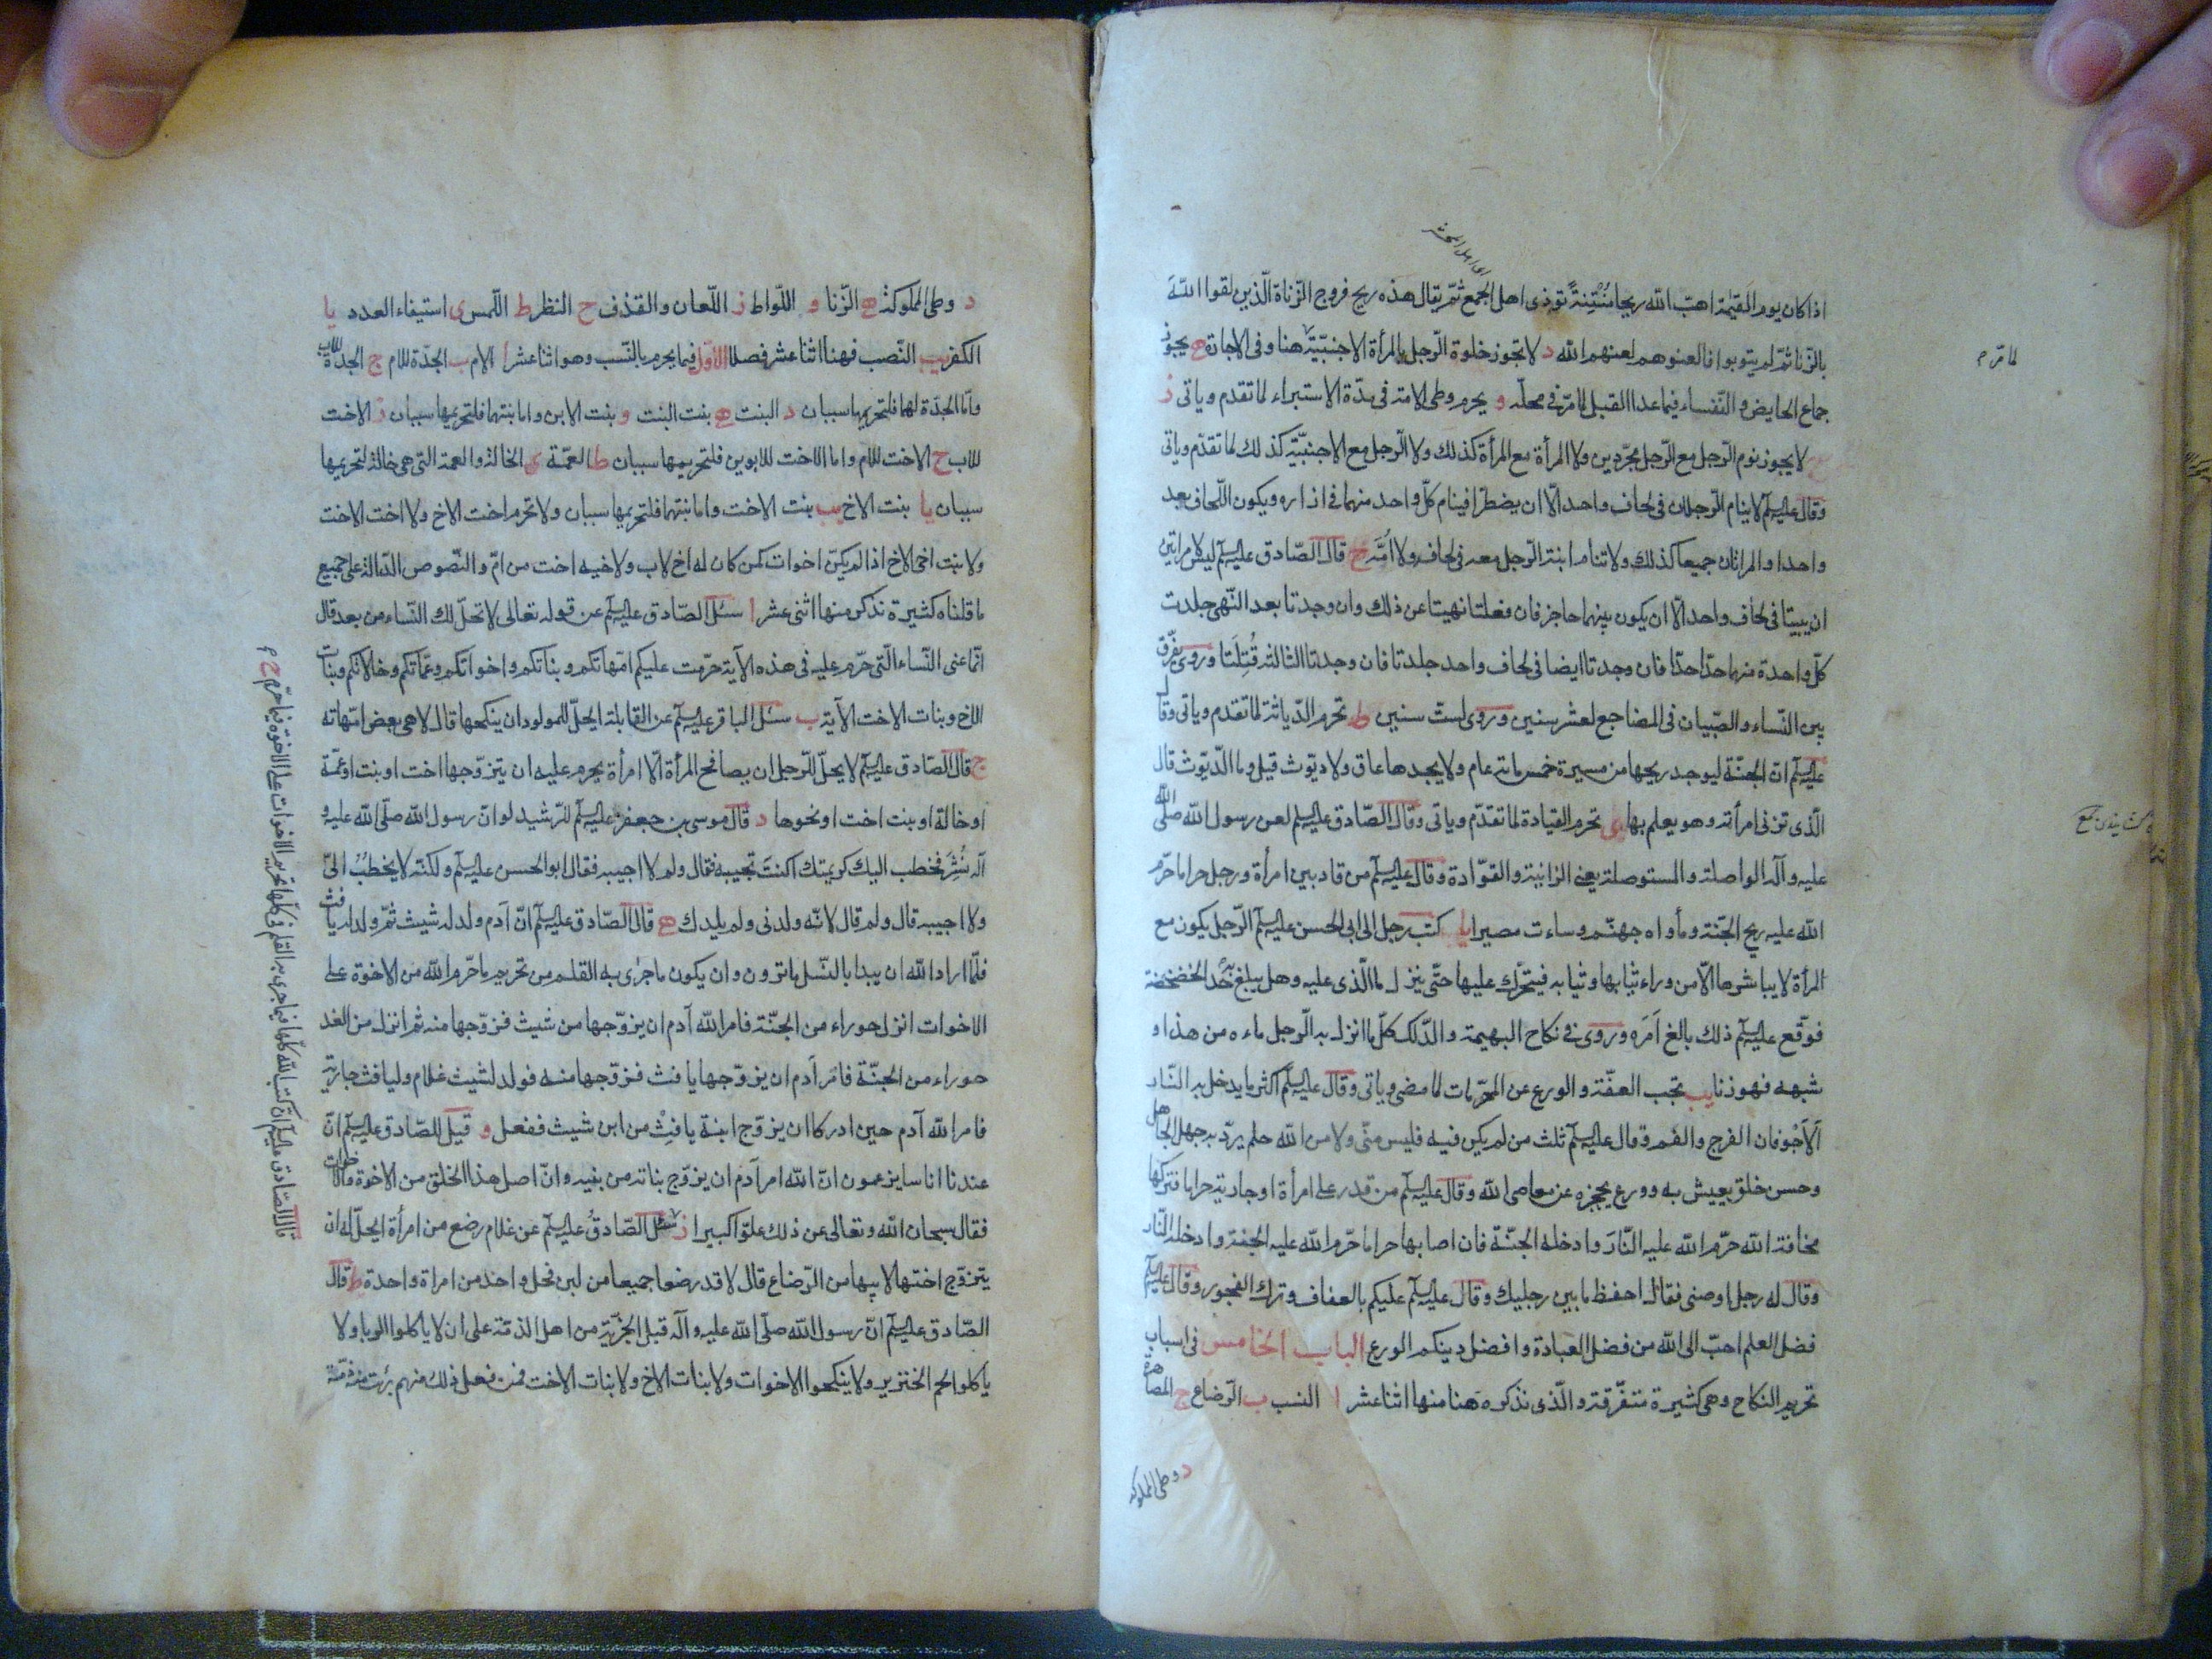 اذا كان يوم القيمة اهبّ الله ريحا مُنْتِنةً تؤذى اهل الجمع ثمّ يقال هذه ريح فروج الزّناة الّذين لقوا اللّهَ
اى اهل المحشر
بالزّنا ثمّ لم يتوبوا فالعنوهم لعنهم الله د لا تجوز خلوة الرّجل بالمرأة الاجنبيّة هنا وفى الاجارة ه يجوز
لما مرّ م
جماع الحايض و النّفساء فيما عدا القبل لما مرّ فى محلّه و يحرم وطى الامة فى مدّة الاستبراء لما تقدم و ياتى ز
لا يجوز نوم الرّجل مع الرّجل مجرّدين ولا المرأة مع المرأة كذلك ولا الرّجل مع الاجنبيّة كذلك لما تقدّم وياتى
وقال عليه السلم لا ينام الرّجلان فى لحاف واحد الّا ان يضطرّا فينام كلّ واحد منهما فى ازاره ويكون اللّحاف بعد
واحدا و المراتان جميعا كذلك ولا تنام ابنة الرّجل معه فى لحاف ولا امّه ح قال الصّادق عليه السلم ليس لامراتين
ان يبيتا فى لحاف واحد الّا ان يكون بينهما حاجز فان فعلتا نهيتا عن ذلك وان وجدتا بعد النّهى جلدت
كلّ واحدة منهما حدّا حدّا فان وجدتا ايضا فى لحاف واحد جلدتا فان وجدتا الثالثة قُتِلَتا وروى يفرّق
بين النّساء و الصّبيان فى المضاجع لعشر سنين وروى لست سنين ط تحرم الدّياثة لما تقدم و ياتى وقا
عليه السلم انّ الجنّة ليوجد ريحها من مسيرة خمس مائة عام ولا يجدها عاق ولا ديّوث قيل وما الدّيّوث قال
الّذى تزنى امرأته وهو يعلم بها ى تحرم القيادة لما تقدّم و ياتى وقال الصّادق عليه السلم لعن رسول الله صلّى الله
عليه وآله الواصلة و المستوصلة يعنى الزانية و القوّادة وقال عليه السلم من قاد بين امرأة ورجل حراما حرّم
الله عليه ريح الجنّة ومأواه جهنّم وساءت مصيرا يا كتب رجل الى ابى الحسن عليه السلم الرّجل يكون مع
المرأة لا يباشرها الّا من وراء ثيابها و ثيابه فيتحرّك عليها حتّى ينزل ما الّذى عليه وهل يبلغ به حدّ الخضخضة
فوقّع عليه السلم ذلك بالغ اَمرَه وروى فى نكاح البهيمة و الدّلك كلّ ما انزل به الرّجل ماءه من هذا و
شبهه فهو زنا يب تجب العفّة و الورع عن المحرّمات لما مضى وياتى وقال عليه السلم اكثر ما يدخل به النّار
اَلاَجْوفان الفرج والفم وقال عليه السلم ثلث من لم يكن فيه فليس منّى ولا من الله حلم يردّ به جهل الجاهل
وحسن خلق يعيش به وورع يحجزه عن معاصى الله وقال عليه السلم من قدر على امرأة او جارية حراما فتركها
مخافة الله حرّم الله عليه النّارَ وادخله الجنّة فان اصابها حراما حرّم الله عليه الجنّة وادخله النّار
وقال له رجل اوصنى فقال احفظ ما بين رجليك وقال عليه السلم عليكم بالعفاف وترك الفجور وقال عليه السلم
فضل العلم احبّ الى الله من فضل العبادة وافضل دينكم الورع الباب الخامس فى اسباب
تحريم النكاح وهى كثيرة متفّرقة و الّذى نذكره هنا منها اثنا عشر ا النسب ب الرّضاع ج المصاهرة
د وطى المملوكة
د وطى المملوكة ه الزّنا و اللّواط ز اللّعان والقذف ح النظر ط اللّمس ى استيفاء العدد يا
الكفر يب النّصب فهنا اثنا عشر فصلا الاوّل فيما يحرم بالنّسب وهو اثنا عشر ا الام ب الجدّة للام ج الجدّة للاب
وامّا الجدّة لهما فلتحريمها سببان د البنت ه بنت البنت و بنت الابن واما بنتهما فلتحريمها سببان ز الاخت
للاب ح الاخت للام واما الاخت للابوين فلتحريمها سببان ط العمّة ى الخالة والعمة التى هى خالة لتحريمها
سببان يا بنت الاخ يب بنت الاخت واما بنتهما فلتحريمها سببان ولا تحرم اخت الاخ ولا اخت الاخت
ولا بنت اخى الاخ اذا لم يكنّ اخوات كمن كان له اخ لاب ولاخيه اخت من امّ و النّصوص الدّالة على جميع
ما قلناه كثيرة نذكر منها اثنى عشر ا سئل الصّادق عليه السلم عن قوله تعالى لا تحلّ لك النّساء من بعد قال
انّما عنى النّساء الّتى حرّم عليه فى هذه الآية حرّمت عليكم امّهاتكم وبناتكم واخواتكم وعمّاتكم وخالاتكم وبنات
الاخ وبنات الاخت الآية ب سئل الباقر عليه السلم عن القابلة ايحلّ للمولود ان ينكحها قال لا هى بعض امّهاته
ج قال الصّادق عليه السلم لا يحلّ للرّجل ان يصافح المرأة الّا امرأة يحرم عليه ان يتزوّجها اخت او بنت او عمّة
او خالة او بنت اخت او نحوها د قال موسى بن جعفر عليه السلم للرّشيد لو انّ رسول الله صلّى الله عليه و
آله نُشِرَ فخطب اليك كريمتك اكنتَ تجيبه فقال ولم لا اجيبه فقال ابو الحسن عليه السلم ولكنّه لا يخطبُ الىّ
ولا اجيبه قال ولم قال لانّه ولدنى ولم يلدك ه قال الصّادق عليه السلم انّ آدم ولد له شيث ثمّ ولد له يافث
فلمّا اراد الله ان يبدا بالنّسل ما ترون وان يكون ما جرٰى به القلم من تحريم ما حرّم الله من الاخوة على
الاخوات انزل حوراء من الجنّة فامر الله آدم ان يزوّجها من شيث فزوّجها منه ثم انزل من الغد
حوراء من الجنّة فامر آدم ان يزوّجها يافث فزوّجها منه فولد لشيث غلام وليافث جارية
فامر الله آدم حين ادركا ان يزوّج ابنة يافث من ابن شيث ففعل و قيل للصّادق عليه السلم انّ
عندنا اناسا يزعمون انّ الله امر آدم ان يزوّج بناته من بنيه وانّ اصل هذا الخلق من الاخوة والاخوات
فقال سبحان الله وتعالى عن ذلك علوّا كبيرا ز سئل الصّادقُ عليه السلم عن غلام رضع من امرأة ايحلّ له ان
يتزوّج اختها لابيها من الرّضاع قال لا قد رضعا جميعا من لبن فحل واحد من امراة واحدة ط قال
الصّادق عليه السلم انّ رسول الله صلّى الله عليه وآله قبل الجزية من اهل الذمّة على ان لا ياكلوا الربا ولا
ياكلوا لحم الخنزير ولا ينكحوا الاخوات ولا بنات الاخ ولا بنات الاخت فمن فعل ذلك منهم برئت منه ذمّة
قال الصّادق عليه السلم انّ كتب الله كلّها فيما جرى به القلم فى كلّها تحريم الاخوات على الاخوة فيما حرّم ح م